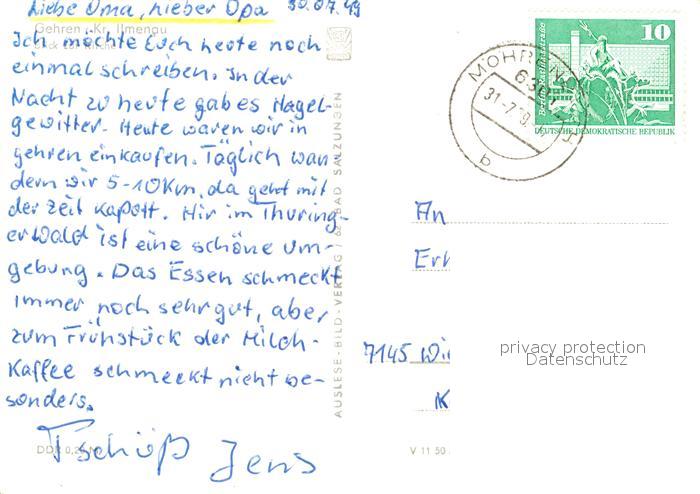 Liebe Oma, lieber Opa 30.07.79
Gehren, Kr. Ilmenau
Ich möchte Euch heute noch
einmal schreiben. In der
Nacht zu heute gab es Hagel-
gewitter. Heute waren wir in
gehren einkaufen. Täglich wan
dern wir 5-10Km, da geht mit
der zeit kapott. Hir im Thuring-
erWald ist eine schöne um-
gebung. Das Essen schmeckt
immer noch sehr gut, aber
zum Frühstück der Milch-
Kaffee schmeckt nicht be-
sonders.
Tschüß Jens
DDR
AUSLESE-BILD-VERLAG / BAD SALZUNGEN
V 11 50
10
DEUTSCHE DEMOKRATISCHE REPUBLIK
31-7
b
An
7145
K
privacy protection
Datenschutz